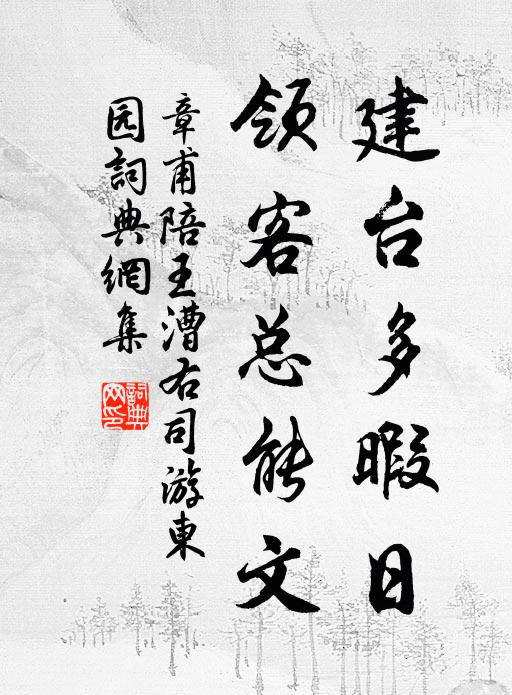 建台多暇日
领客总能文
章甫陪王漕右司游東
园詞典網集
詞典网印